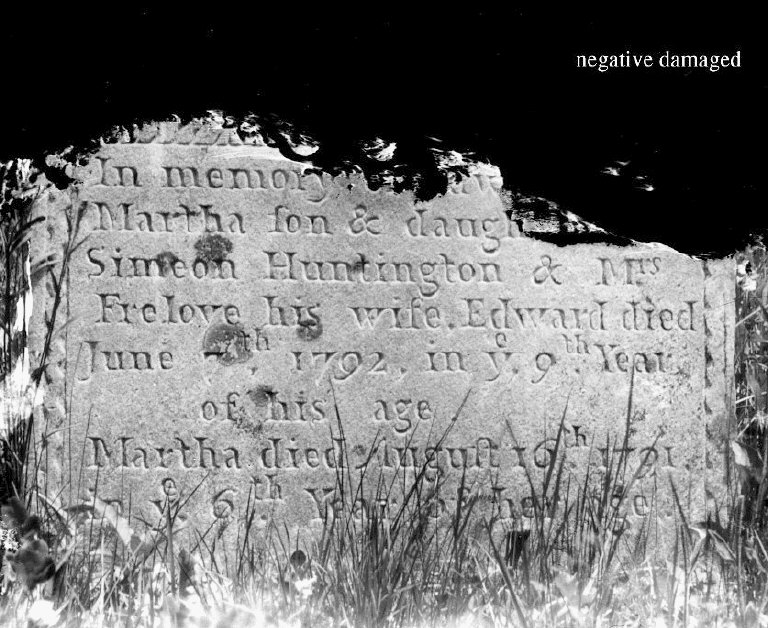 negative damaged
In memory
Martha ſon & daugh
Simeon Huntington & Mrs
Frelove his wife. Edward died
June 7th, 1792, in ye. 9th. Year
of his age
Martha died Auguſt 16th 1791
in ye. 6th. Year of her age.